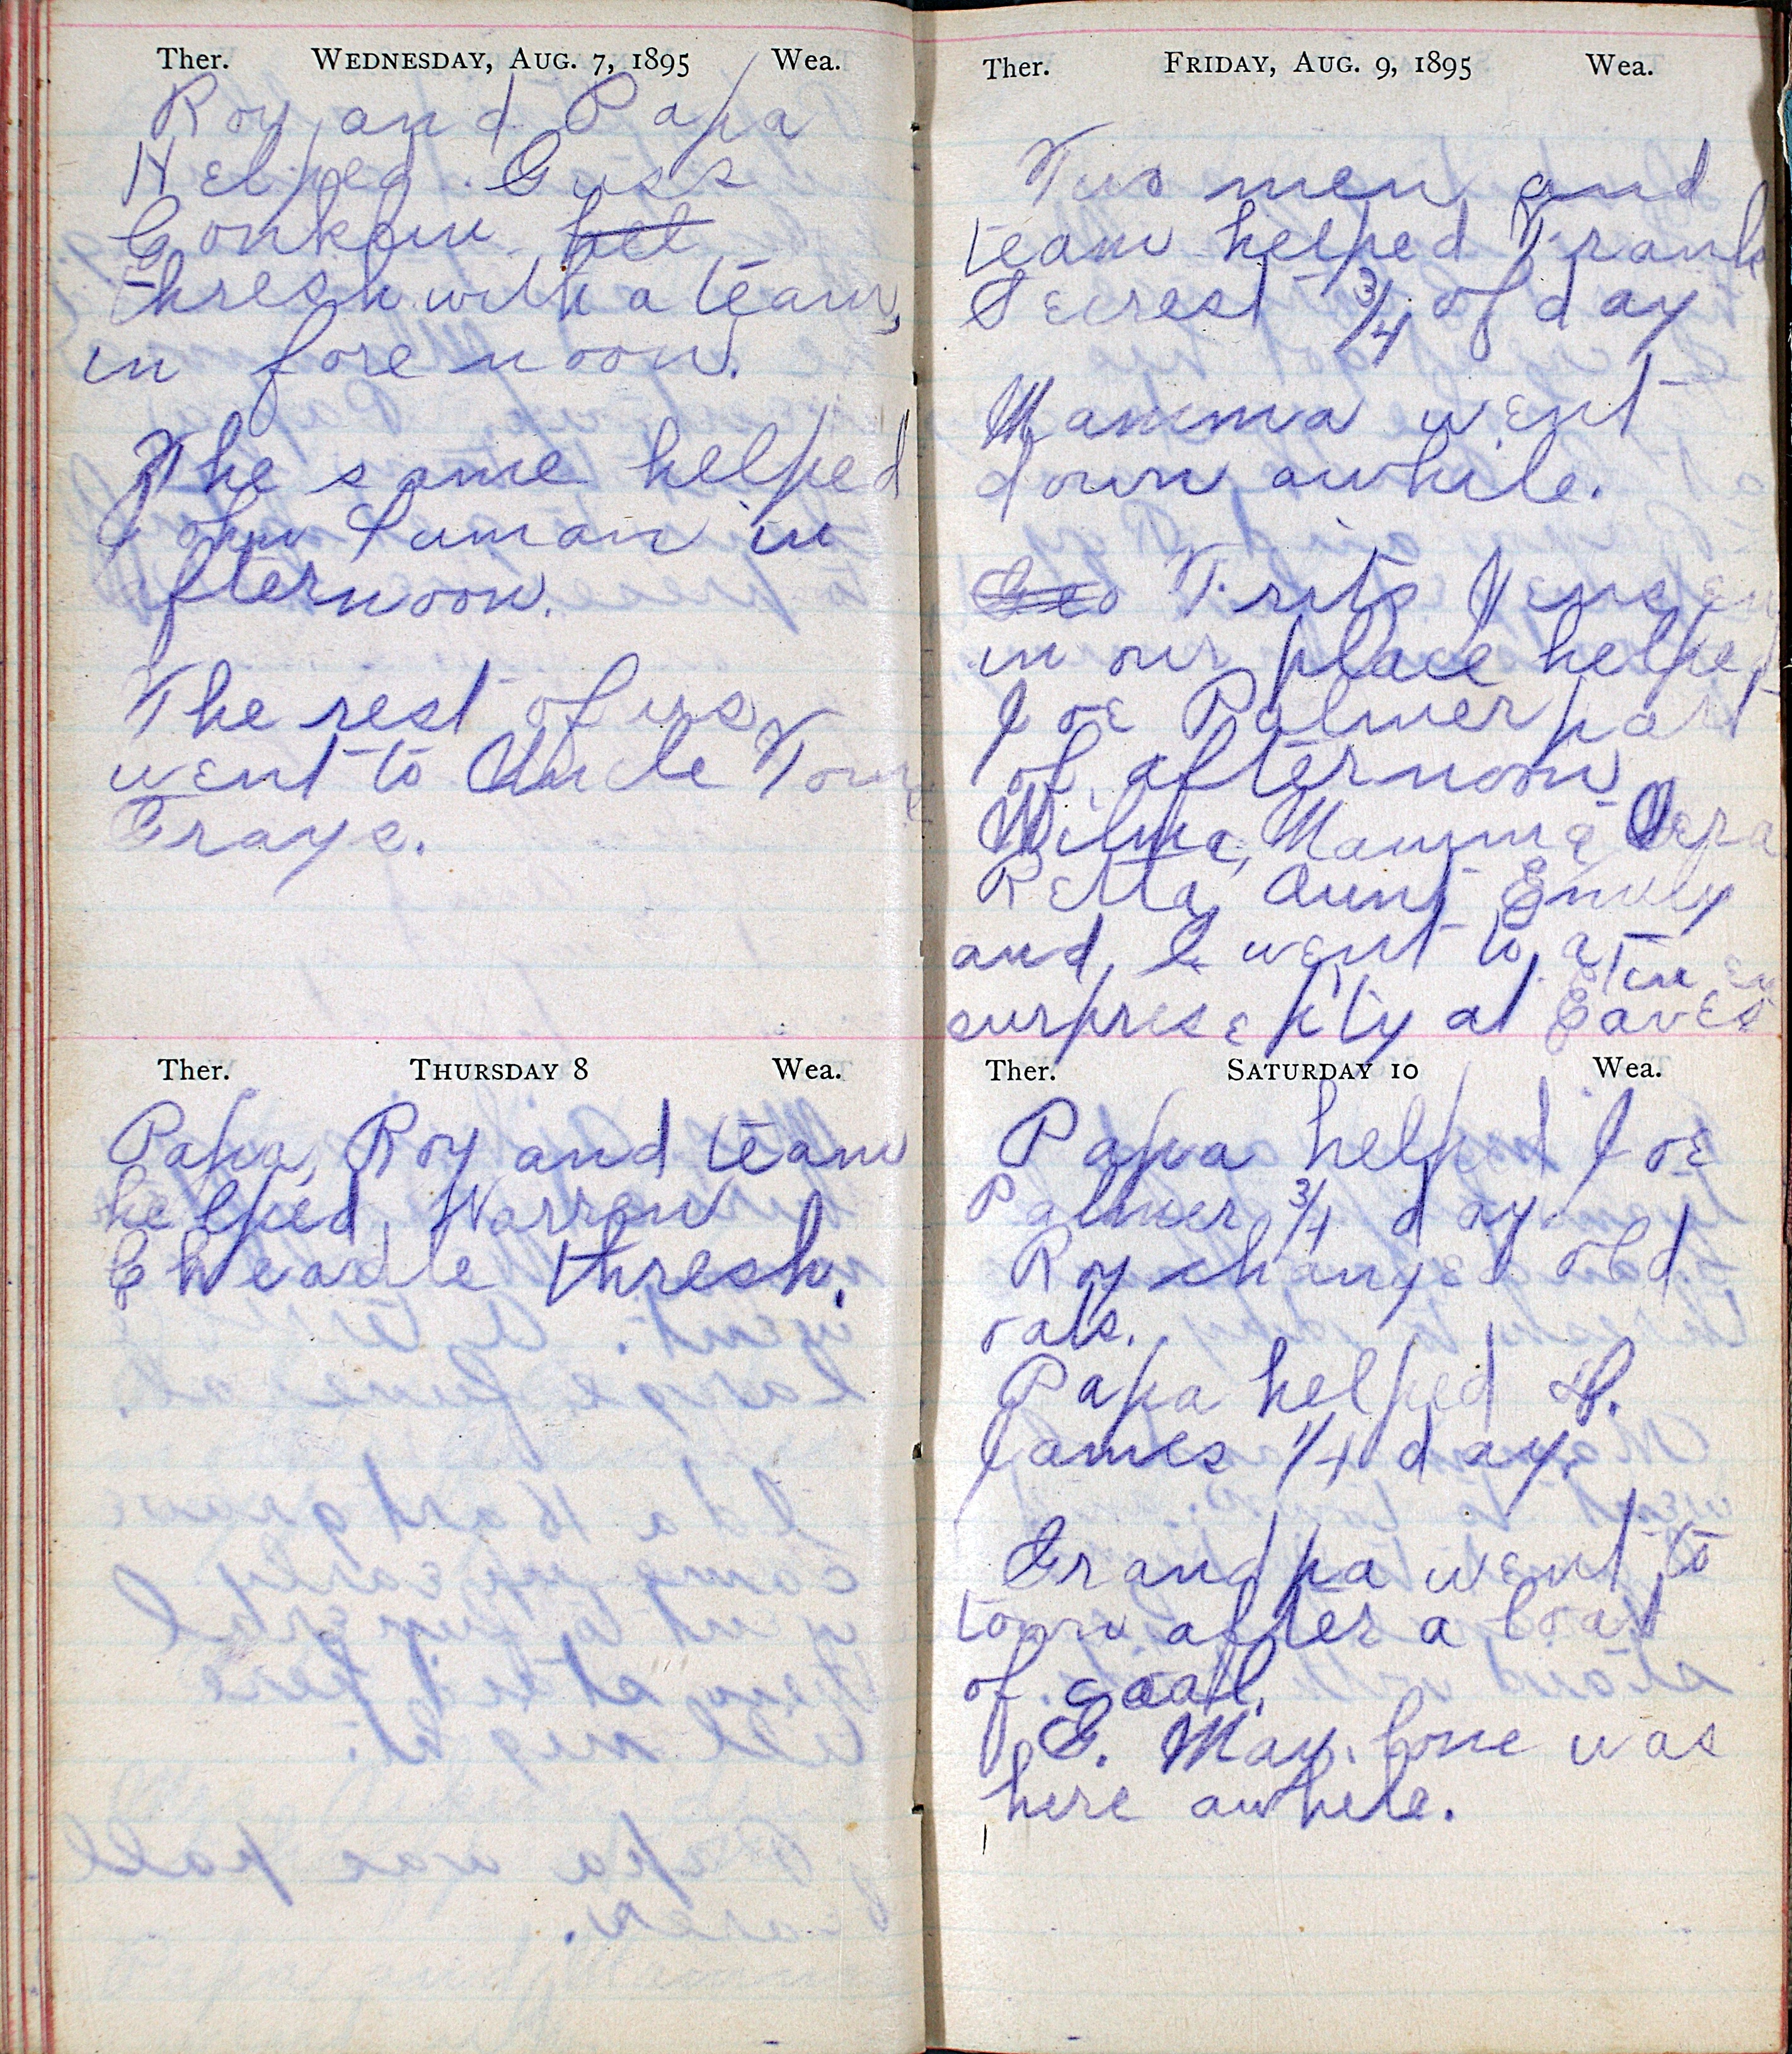 Ther. WEDNESDAY, AUG. 7, 1895 Wea.
Roy and Papa
Helped Guss
Gonkew hel
thresh with a team
in fore noon.
The same helped
John Luman in
fternoon.
The rest of us
went to Uncle Tom
Grays.
Ther. THURSDAY 8 Wea.
Papa, Roy and team
helped Warren
Cheadle thresh.
Ther. FRIDAY, AUG. 9, 1895 Wea.
Two men and
team helped Frank
Secrest 3/4 of day
Mamma went
down awhile.
Geo Frits Jensen
in our place helped
Joe Palmer part
of afternoon
Wilma, Mamma Vera
Retta, Aunt Emily
and I went to a
surprise pty at Eaves
Ther. SATURDAY 10 Wea.
Papa helped Joe
Palmer 3/4 day.
Roy changed old
oats.
Papa helped
James 1/4 day.
Grandpa went to
town after a load
of coal.
G. May Cone was
here awhile.